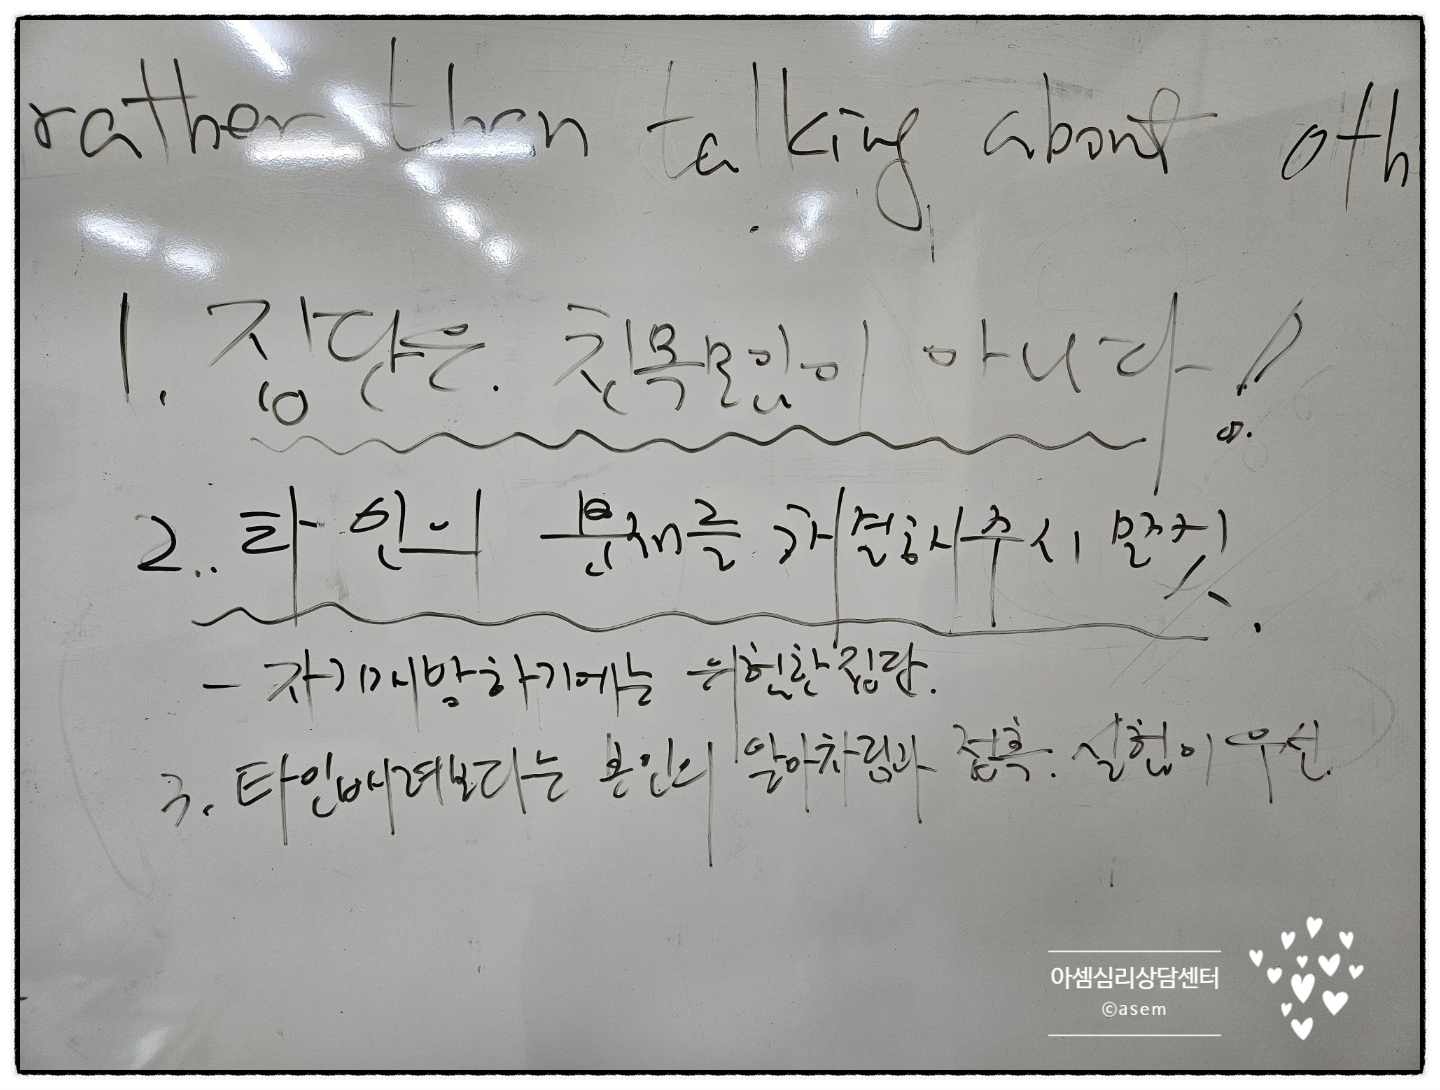 rather than talking about oth
1. 집단은 친목모임이 아니다!
2.. 타인의 문제를 해결해주시 말것.
- 자기개방하기에는 위험한 집단.
3. 타인배려보다는 본인의 알아차림과 접촉. 실험이 우선.
아셈심리상담센터
©asem